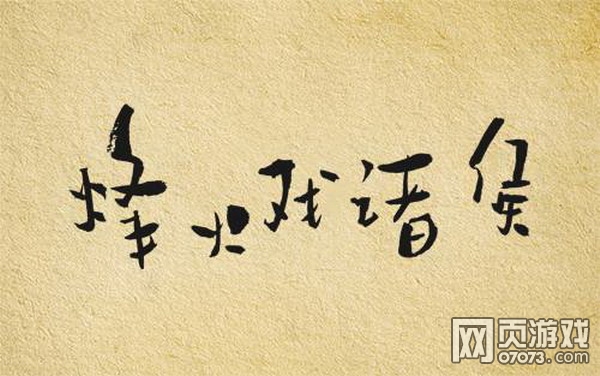 烽火戏诸侯
网页游戏
07073.com